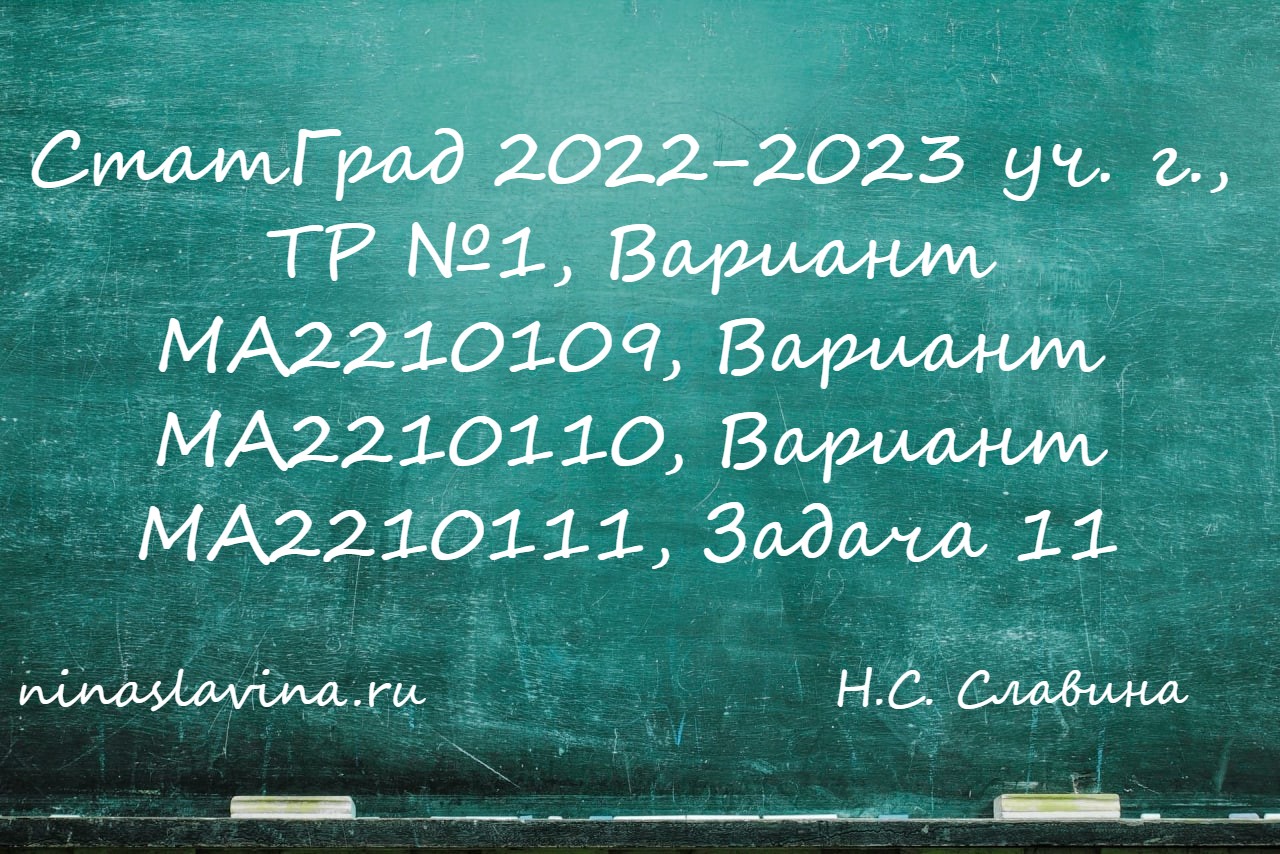 СтатГрад 2022-2023 уч. г.,
ТР №1, Вариант
МА2210109, Вариант
МА2210110, Вариант
МА2210111, Задача 11
ninaslavina.ru
Н.С. Славина